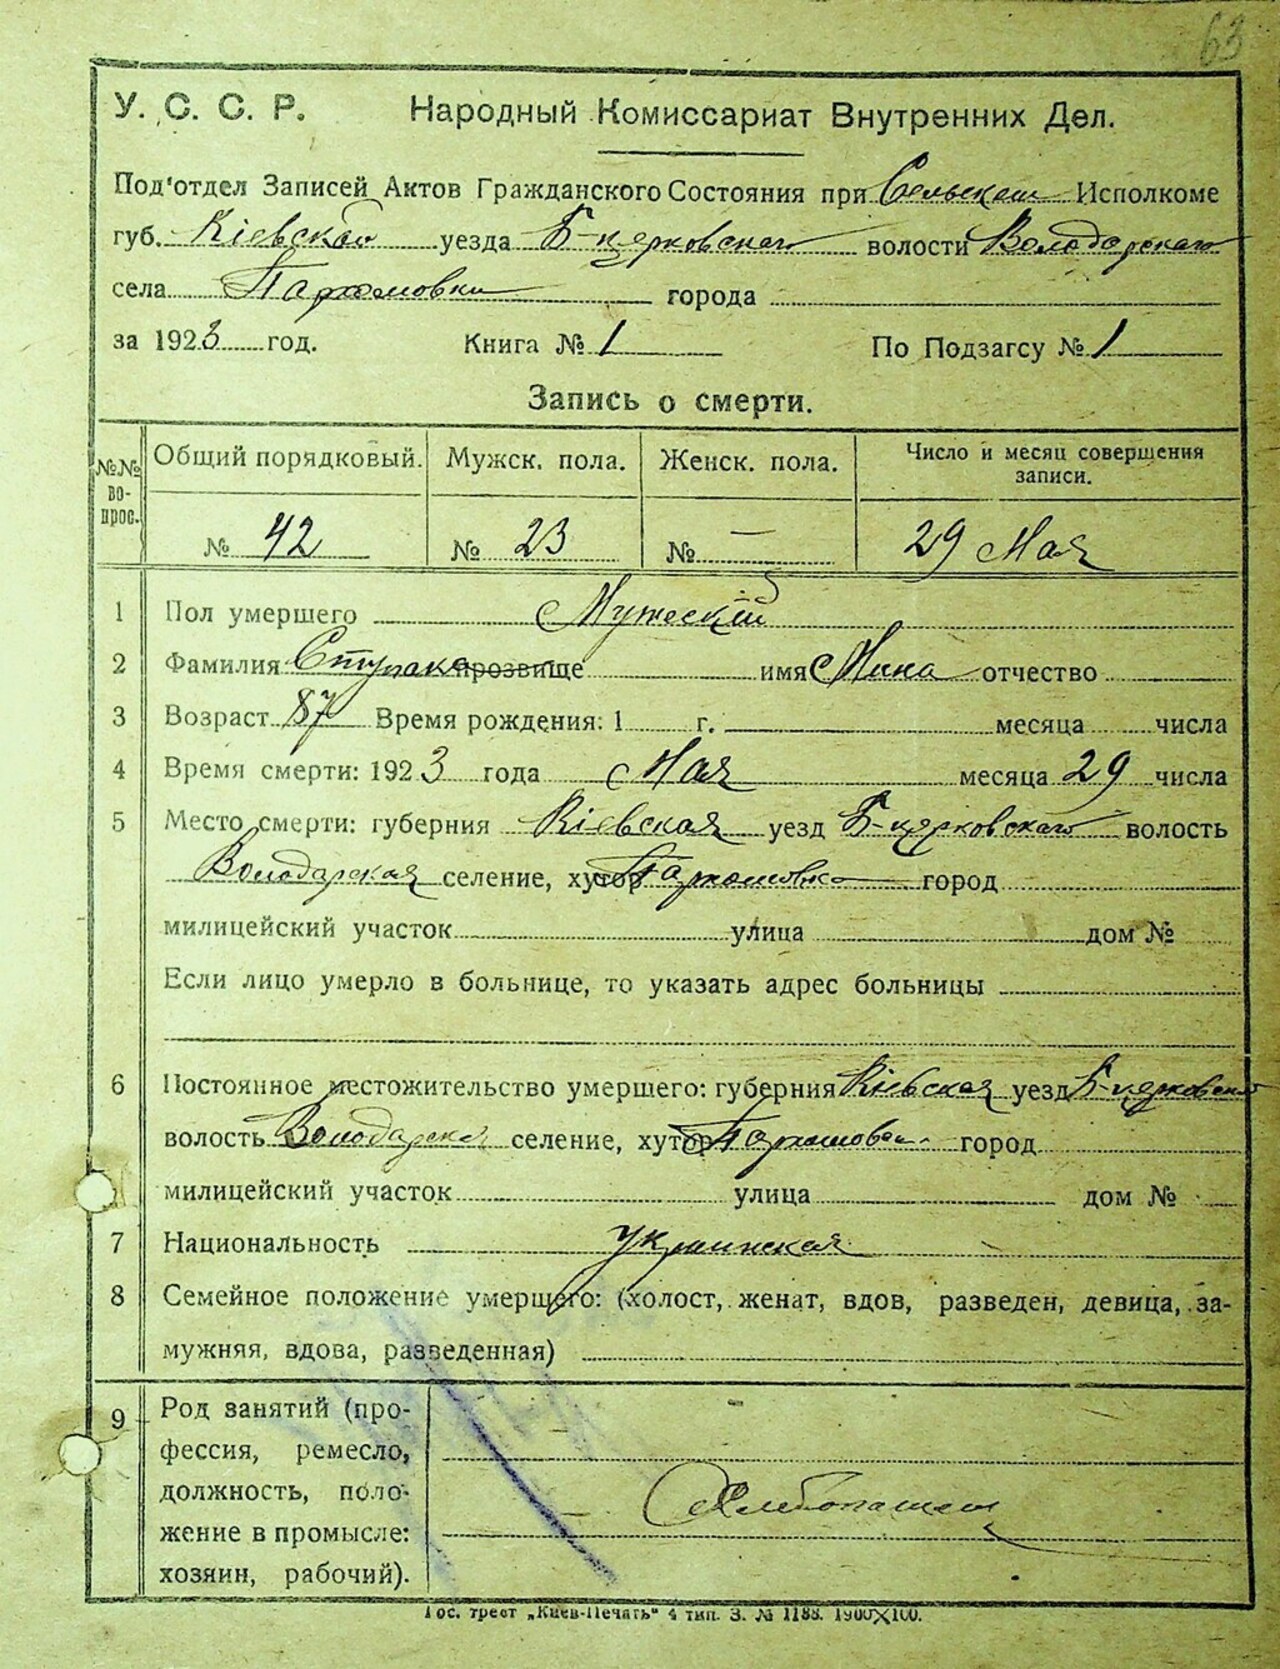 63
У. С. С. Р. Народный Комиссариат Внутренних Дел.
Под'отдел Записей Актов Гражданского Состояния при Сельском Исполкоме
губ. Кіевской уезда Б-церковского волости Володарского
села Пархомовки города
за 1923 год. Книга № 1 По Подзагсу № 1
Запись о смерти.
№№ во-прос. Общий порядковый. Мужск. пола. Женск. пола. Число и месяц совершения записи.
№ 42 № 23 № — 29 Мая
1 Пол умершего Мужеский
2 Фамилия Ступака прозвище имя Мина отчество
3 Возраст 87 Время рождения: 1 г. месяца числа
4 Время смерти: 1923 года Мая месяца 29 числа
5 Место смерти: губерния Кіевская уезд Б-церковского волость
Володарская селение, хутор Пархомовка город
милицейский участок улица дом №
Если лицо умерло в больнице, то указать адрес больницы
6 Постоянное местожительство умершего: губерния Кіевская уезд Б-церковского
волость Володарская селение, хутор Пархомовка город
милицейский участок улица дом №
7 Национальность украинская
8 Семейное положение умершего: (холост, женат, вдов, разведен, девица, за-
мужняя, вдова, разведенная)
9 Род занятий (про-
фессия, ремесло,
должность, поло-
жение в промысле:
хозяин, рабочий).
Хлебопашец
Гос. трест „Киев-Печать" 4 тип. З. № 1188. 1900X100.